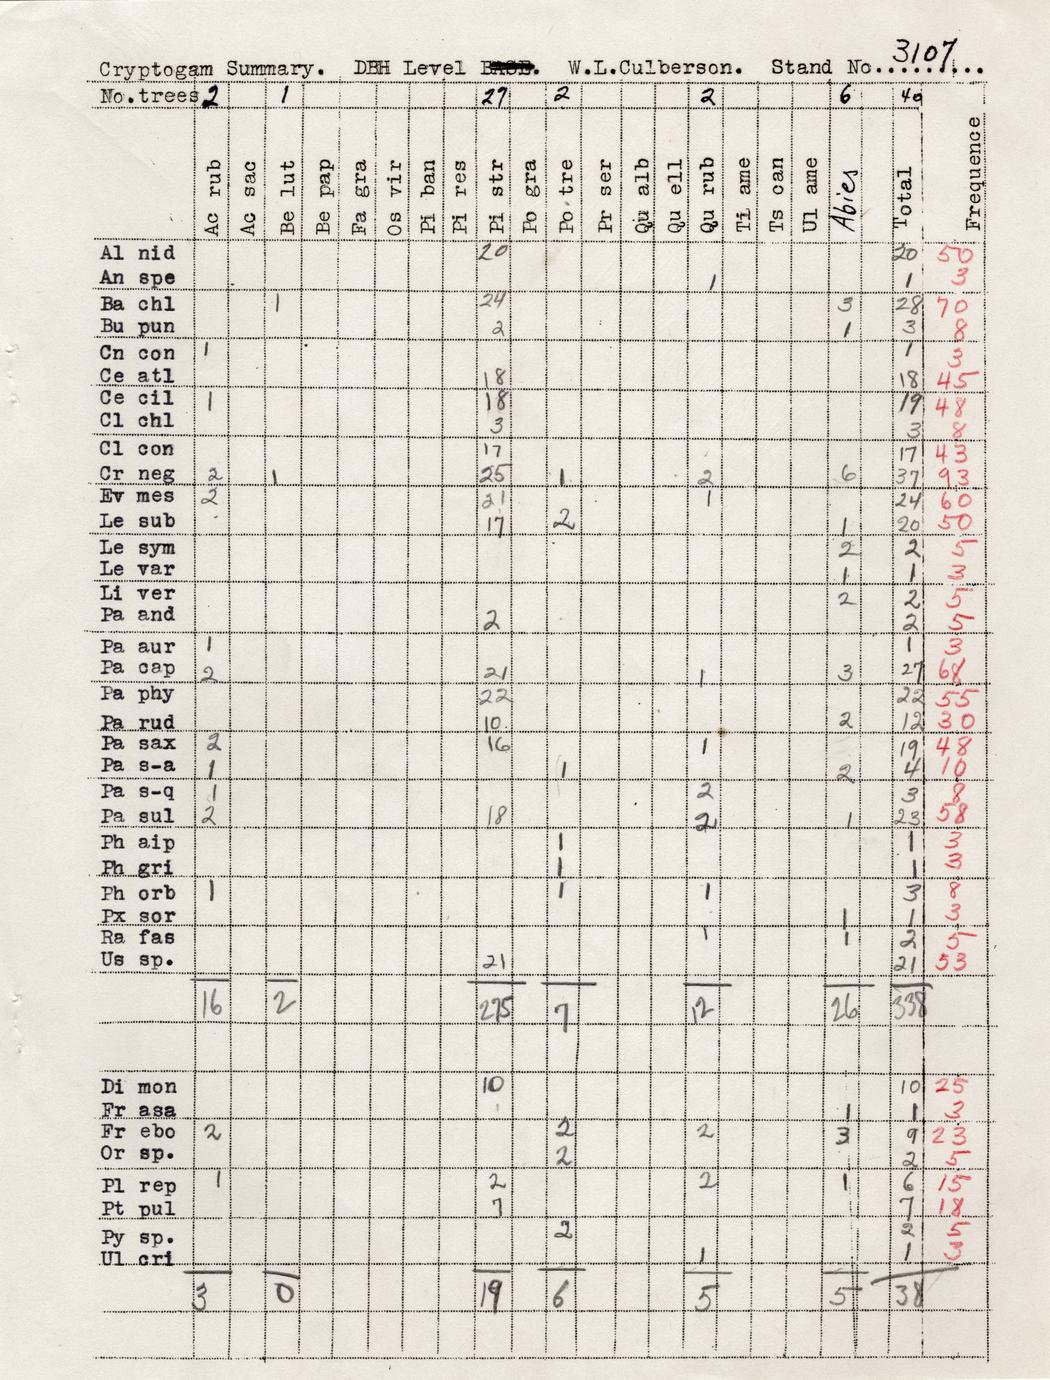 Cryptogam Summary. DBH Level BASE. W.L.Culberson. Stand No. 3107
No.trees 2 1 27 2 2 6 40
Ac rub Ac sac Be lut Be pap Fa gra Os vir Pi ban Pi res Pi str Po gra Po tre Pr ser Qu alb Qu ell Qu rub Ti ame Ts can Ul ame Abies Total Frequence
Al nid 20 20 50
An spe 1 1 3
Ba chl 1 24 3 28 70
Bu pun 2 1 3 8
Cn con 1 1 3
Ce atl 18 18 45
Ce cil 1 18 19 48
Cl chl 3 3 8
Cl con 17 17 43
Cr neg 2 1 25 1 2 6 37 93
Ev mes 2 21 1 24 60
Le sub 17 2 1 20 50
Le sym 2 2 5
Le var 1 1 3
Li ver 2 2 5
Pa and 2 2 5
Pa aur 1 1 3
Pa cap 2 21 1 3 27 68
Pa phy 22 22 55
Pa rud 10 2 12 30
Pa sax 2 16 1 19 48
Pa s-a 1 1 2 4 10
Pa s-q 1 2 3 8
Pa sul 2 18 2 1 23 58
Ph aip 1 1 3
Ph gri 1 1 3
Ph orb 1 1 1 3 8
Px sor 1 1 3
Ra fas 1 1 2 5
Us sp. 21 21 53
16 2 275 7 12 26 338
Di mon 10 10 25
Fr asa 1 1 3
Fr ebo 2 2 2 3 9 23
Or sp. 2 2 5
Pl rep 1 2 2 1 6 15
Pt pul 7 7 18
Py sp. 2 2 5
Ul cri 1 1 3
3 0 19 6 5 5 38